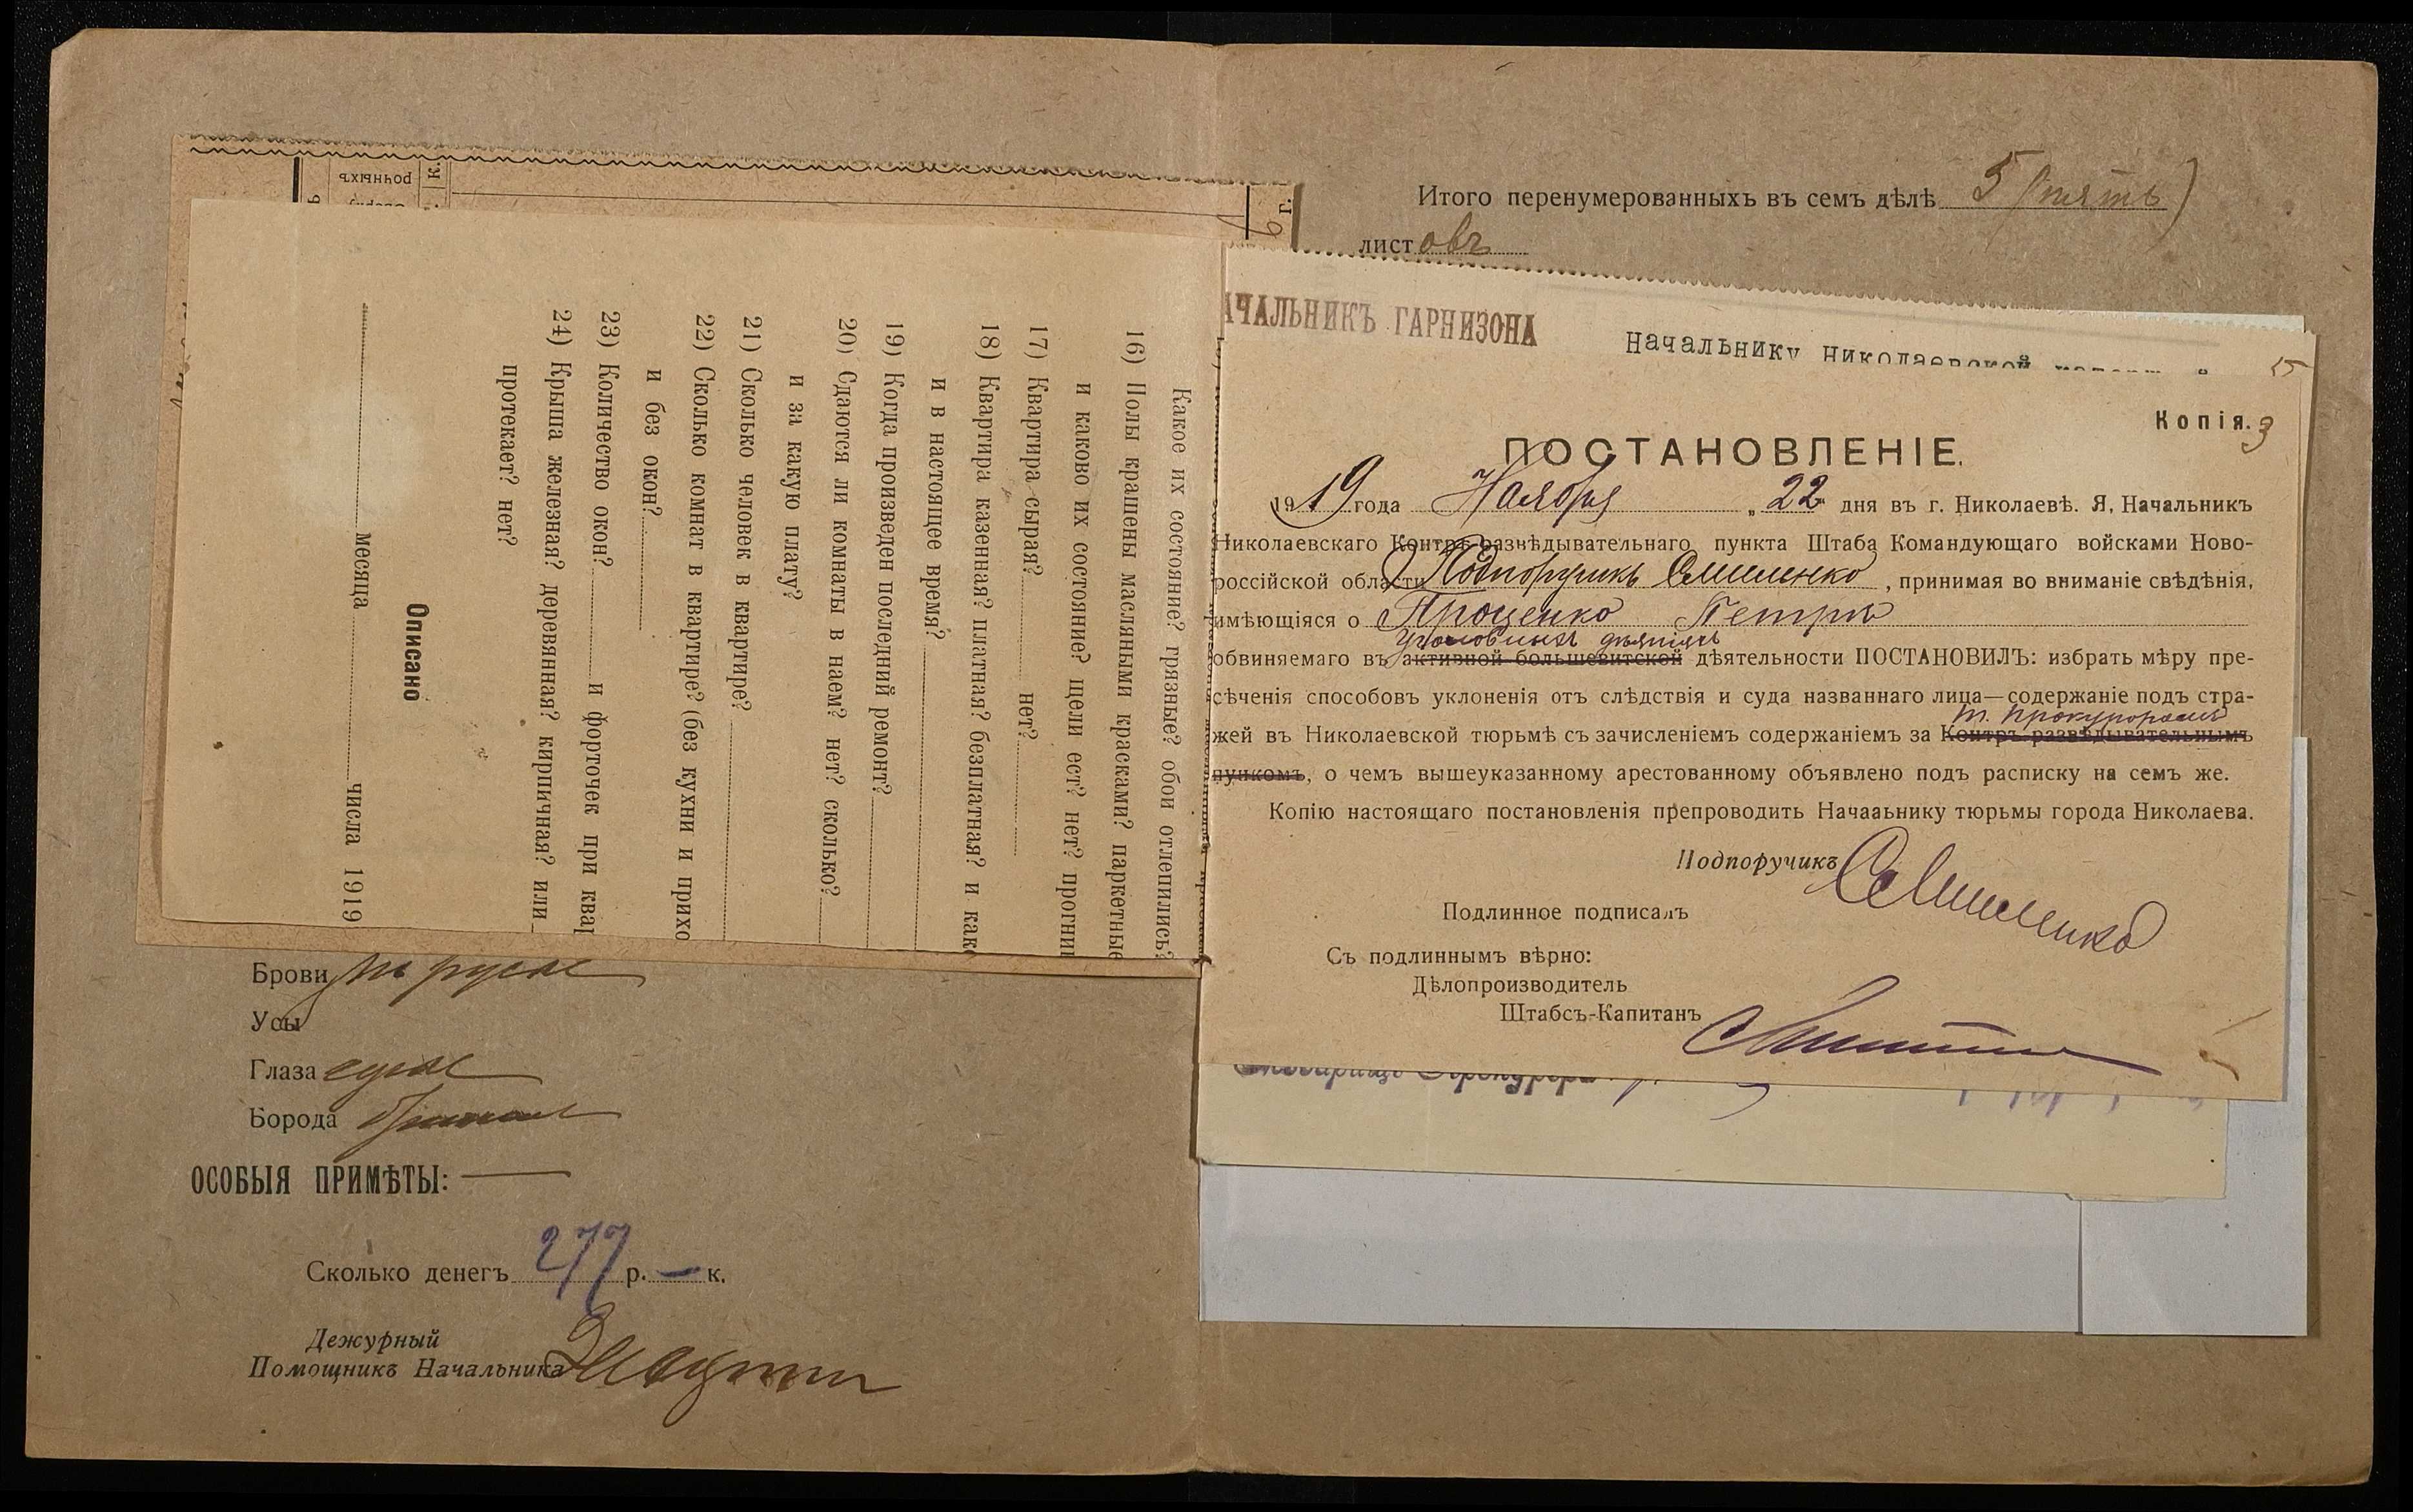 рочныхъ
к.
г.
Какое их состояние? грязные? обои отлепились?
16) Полы крашены масляными красками? паркетные
и каково их состояние? щели ест? нет? прогнил
17) Квартира сырая? нет?
18) Квартира казенная? платная? безплатная? и как
и в настоящее время?
19) Когда произведен последний ремонт?
20) Сдаются ли комнаты в наем? нет? сколько?
и за какую плату?
21) Сколько человек в квартире?
22) Сколько комнат в квартире? (без кухни и прихо
и без окон?
23) Количество окон? и форточек при квар
24) Крыша железная? деревянная? кирпичная? или
протекает? нет?
Описано
месяца числа 1919
Брови русые
Усы
Глаза серые
Борода
ОСОБЫЯ ПРИМѢТЫ: —
Сколько денегъ 277 р. — к.
Дежурный
Помощникъ Начальника
Итого перенумерованныхъ въ семъ дѣлѣ 5 (пять)
листовъ
АЧАЛЬНИКЪ ГАРНИЗОНА
Начальнику Николаевской
5
Копія. 3
ПОСТАНОВЛЕНІЕ.
1919 года Ноября „ 22 дня въ г. Николаевѣ. Я, Начальникъ
Николаевскаго Контръ-развѣдывательнаго пункта Штаба Командующаго войсками Ново-
россійской области Подпоручикъ , принимая во вниманіе свѣдѣнія,
имѣющіяся о Проценко Петръ
уголовныхъ дѣяніяхъ
обвиняемаго въ активной большевитской дѣятельности ПОСТАНОВИЛЪ: избрать мѣру пре-
сѣченія способовъ уклоненія отъ слѣдствія и суда названнаго лица—содержаніе подъ стра-
т. прокуроромъ
жей въ Николаевской тюрьмѣ съ зачисленіемъ содержаніемъ за Контръ-развѣдывательнымъ
пункомъ, о чемъ вышеуказанному арестованному объявлено подъ расписку на семъ же.
Копію настоящаго постановленія препроводить Начааьнику тюрьмы города Николаева.
Подпоручикъ
Подлинное подписалъ
Съ подлиннымъ вѣрно:
Дѣлопроизводитель
Штабсъ-Капитанъ
Товарищъ Прокурора